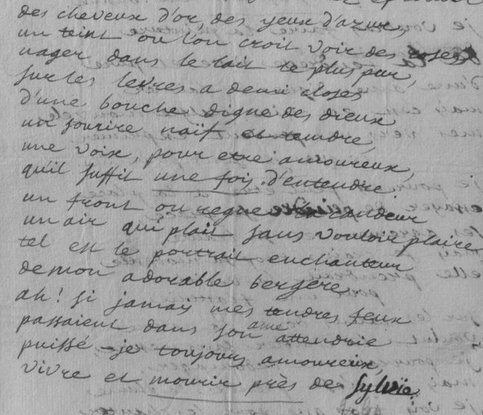 des cheveux d'or, des yeux d'azur,
un teint ou l'on croit voir des roses
nager dans le lait le plus pur,
sur les levres a demi closes
d'une bouche digne des dieux
un sourire naif et tendre,
une voix, pour etre amoureux,
qu'il suffit une fois d'entendre
un front ou regne la candeur
un air qui plait sans vouloir plaire
tel est le portrait enchanteur
de mon adorable bergere
ah! si jamais mes tendres feux
passaient dans son ame attendrie
puissé-je toujours amoureux
vivre et mourir près de Sylvie.